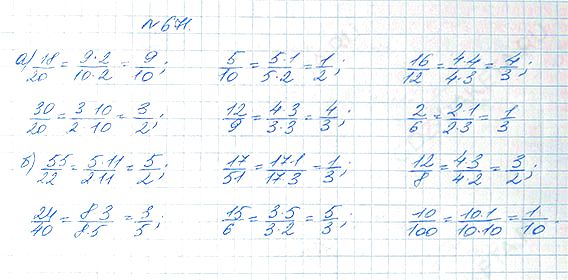 №671.
а) 18/20 = 9·2/10·2 = 9/10; 5/10 = 5·1/5·2 = 1/2; 16/12 = 4·4/4·3 = 4/3;
30/20 = 3 10/2 10 = 3/2; 12/9 = 4 3/3·3 = 4/3; 2/6 = 2·1/2·3 = 1/3
б) 55/22 = 5·11/2 11 = 5/2; 17/51 = 17·1/17·3 = 1/3; 12/8 = 4·3/4·2 = 3/2;
24/40 = 8 3/8·5 = 3/5; 15/6 = 3·5/3·2 = 5/3; 10/100 = 10·1/10·10 = 1/10.